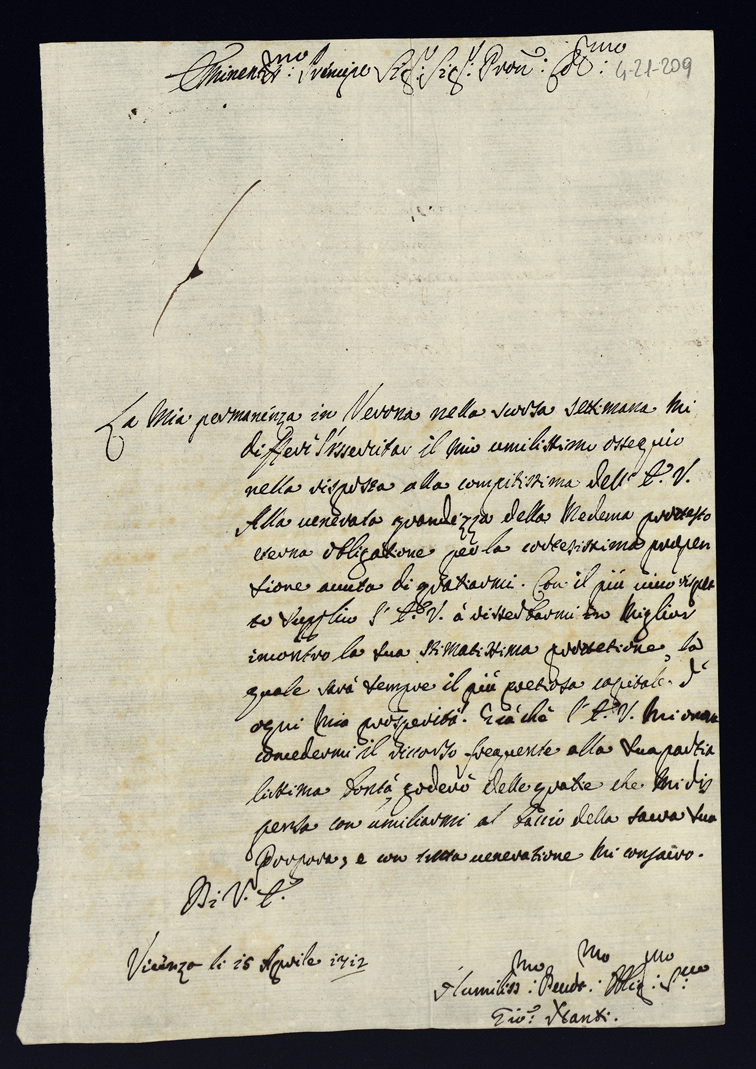 Eminentmo: Principe Sigr: Sigr: Pron: Colmo: 4-21-209
La mia permanenza in Verona nella scorsa settimana mi
differì l'essercitar il mio umilissimo ossequio
nella risposta alla compitissima dell' E. V.
Alla venerata grandezza della Medema protesto
eterna obligatione per la cortesissima propen
sione avuta di gratiarmi. Con il più vivo rispet
to supplico l' E. V. à risserbarmi in miglior
incontro la sua stimatissima protetione, la
quale sarà sempre il più pretioso capitale d'
ogni mia prosperità. Già chè l' E. V. mi onora
concedermi il ricorso frequente alla sua partia
lissima bontà goderò delle gratie che mi dis
pensa con umiliarmi al baccio della sacra sua
Porpora, e con tutta veneratione mi consacro.
Di V. E.
Vicenza li 15 Aprile 1712
Humiliss:mo Devot:mo Oblig:mo S:re
Gio: